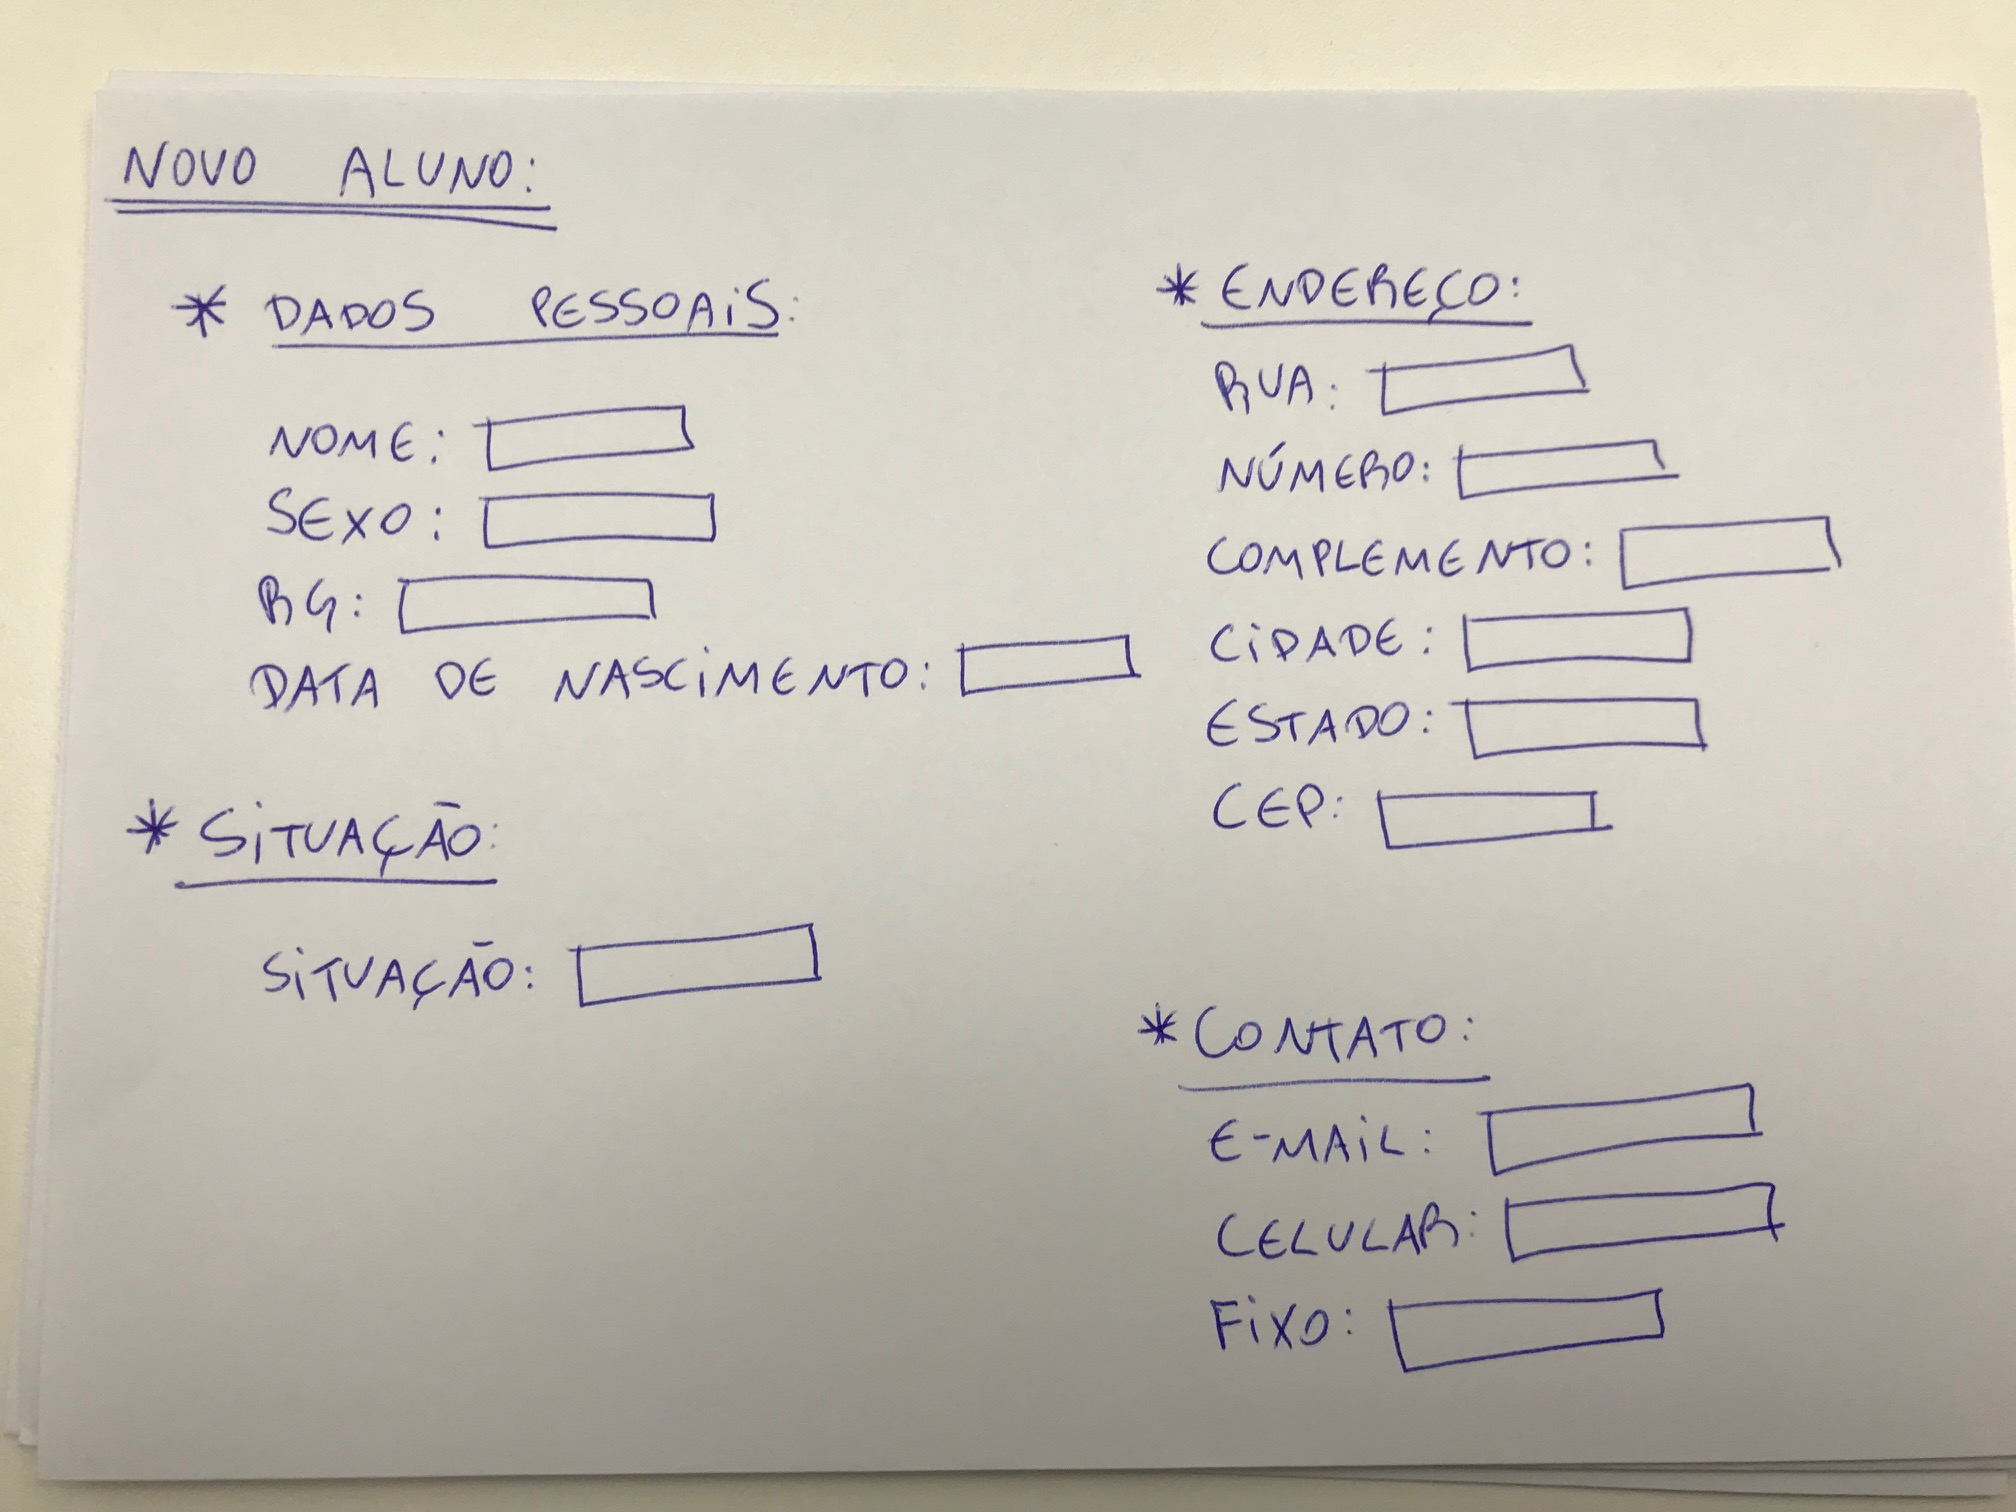 NOVO ALUNO:
* DADOS PESSOAIS:
NOME:
SEXO:
RG:
DATA DE NASCIMENTO:
* SITUAÇÃO:
SITUAÇÃO:
* ENDEREÇO:
RUA:
NÚMERO:
COMPLEMENTO:
CIDADE:
ESTADO:
CEP:
* CONTATO:
E-MAIL:
CELULAR:
FIXO: